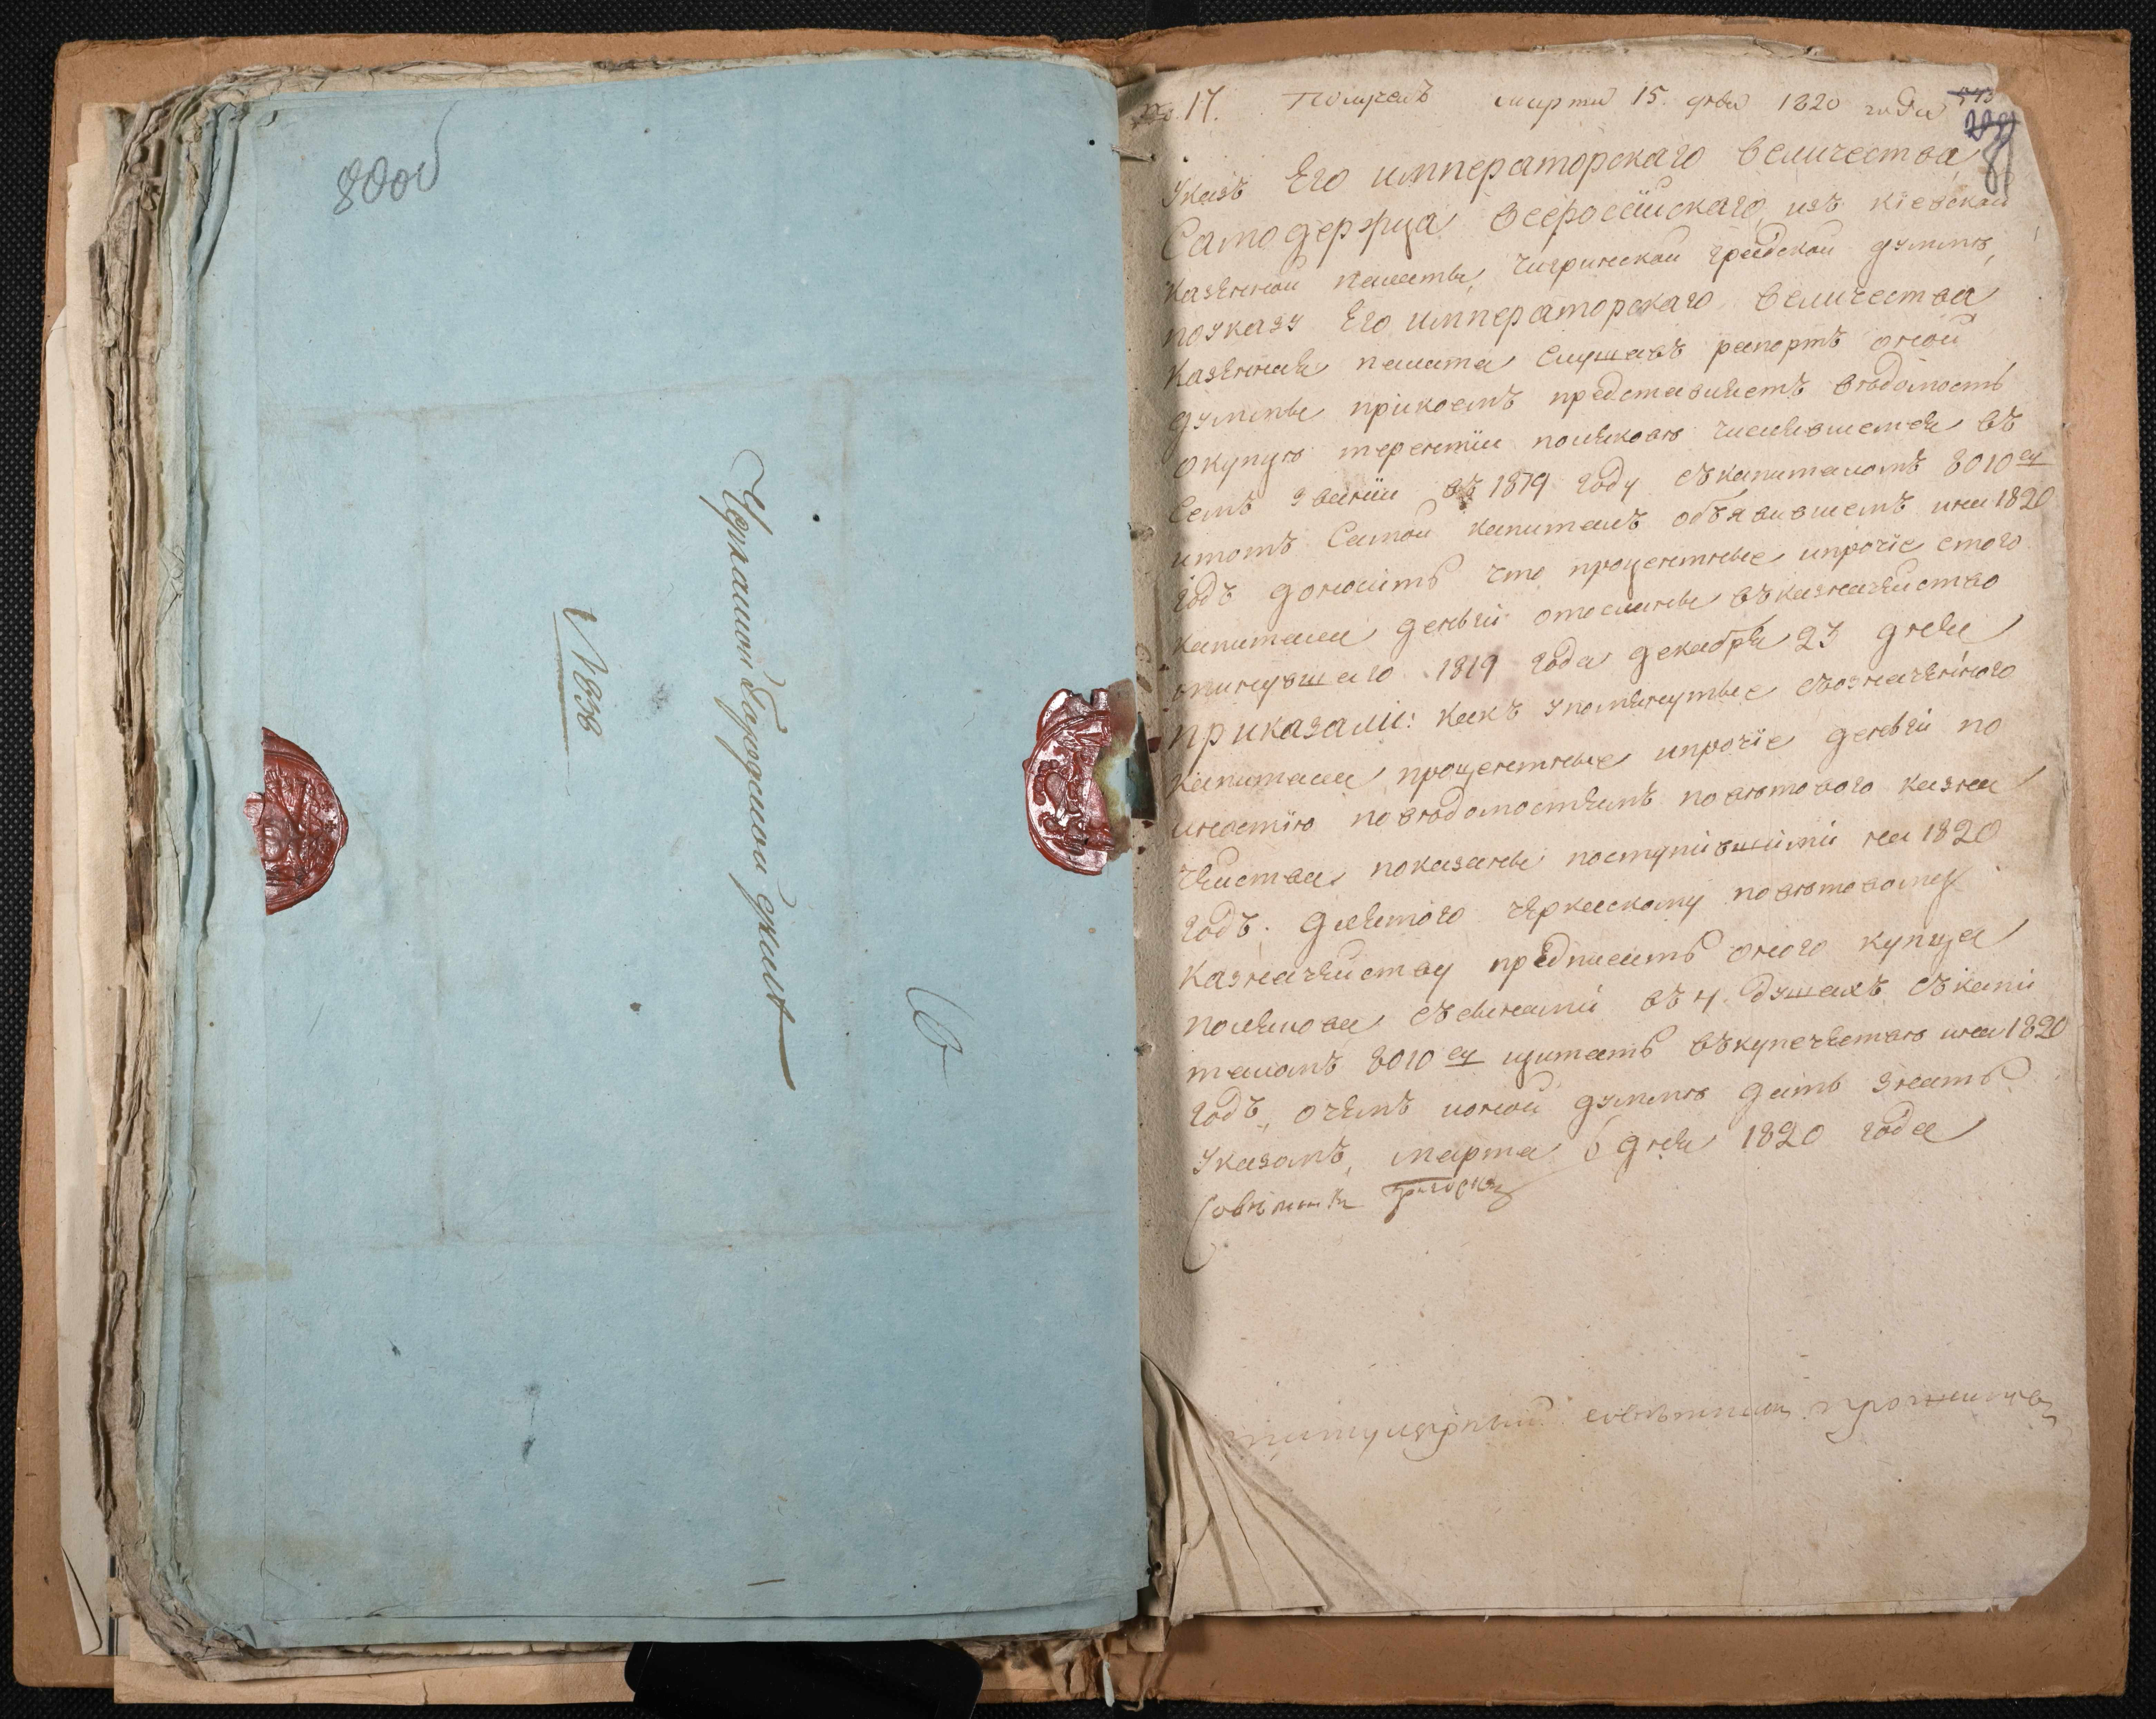 80об
Черкаской Городской думе
№ 858
№ 17. Получен марта 15. дня 1820 года
81
Указъ Его императорскаго величества
Самодержца всеросейискаго, изъ кіевской
казенной палаты, чигринской градской думмѣ,
поуказу Его императорскаго величества
казенная палата Слушавъ рапортъ оной
думмы прикоемъ представляетъ вѣдомость
окупцѣ терентии поляковѣ числившемся въ
Семъ звании въ 1819 году съкапиталомъ 8010 ру
итотъ Самой капиталъ объявившемъ ина 1820
годъ доноситъ что процентные ипрочіе стого
капитала деньги отосланы въказначейство
минувшаго 1819 года декабря 23 дня
приказали: какъ упомянутые съозначенного
капитала процентные ипрочіе деньги по
повѣдомостямъ повѣтового казна
чейства показаны поступившими на 1820
годъ. Длятого черкаскому повѣтовому
казначейству предписать оного купца
полякова съсынами въ 4. душахъ съкапи
таломъ 8010 ру щитать въкупечествѣ ина 1820
годъ, очемъ ионой думмѣ дать знать
Указомъ, марта 6 дня 1820 года
Совѣтникъ
титулярный совѣтникъ